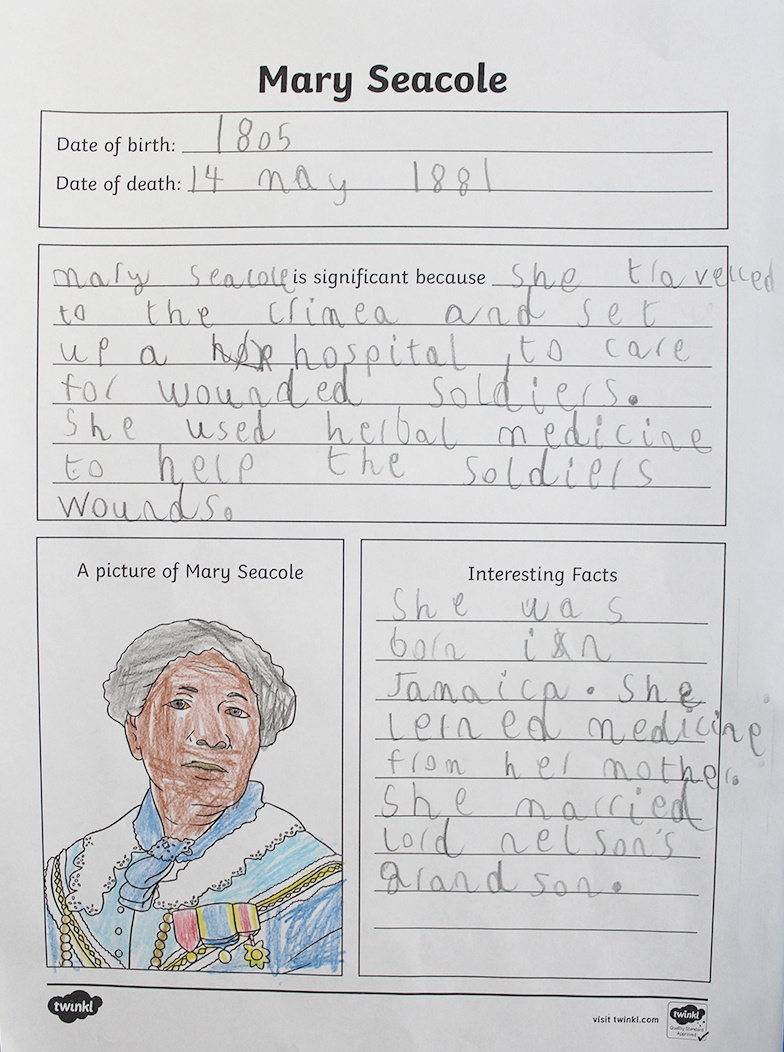 Mary Seacole
Date of birth: 1805
Date of death: 14 may 1881
mary seacole is significant because she travelled
to the crimea and set
up a hospital, to care
for wounded soldiers.
She used herbal medicine
to help the soldiers
wounds.
A picture of Mary Seacole
Interesting Facts
She was
born in
Jamaica. She
lerned medicine
from her mother.
She married
lord nelson's
grandson.
twinkl
visit twinkl.com
twinkl
Quality Standard
Approved